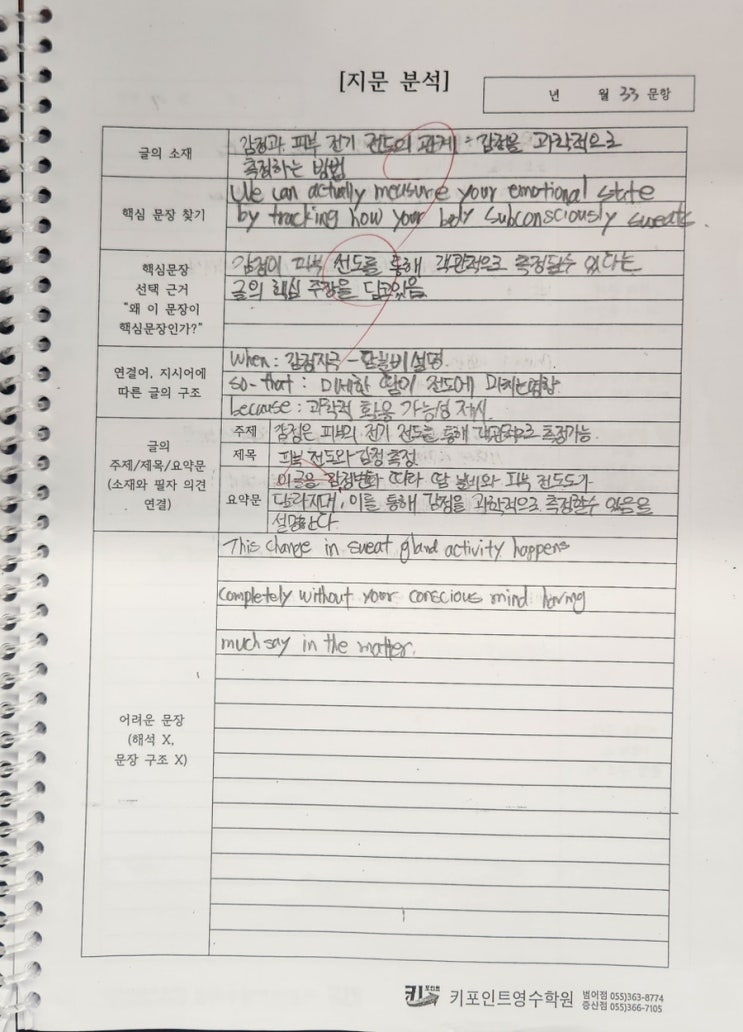 [지문 분석]
년 월 33 문항
글의 소재
감정과 피부 전기 전도의 관계 : 감정을 과학적으로
측정하는 방법
핵심 문장 찾기
We can actually measure your emotional state
by tracking how your body subconsciously sweats.
핵심문장
선택 근거
"왜 이 문장이
핵심문장인가?"
감정이 피부 전도를 통해 객관적으로 측정될수 있다는
글의 핵심 주장을 담고있음
연결어, 지시어에
따른 글의 구조
When : 감정자극 - 땀분비 설명
so-that : 미세한 땀이 전도에 미치는영향
because : 과학적 활용 가능성 제시
글의
주제/제목/요약문
(소재와 필자 의견
연결)
주제
감정은 피부의 전기 전도를 통해 객관적으로 측정가능.
제목
피부 전도와 감정 측정
요약문
이글은 감정변화 따라 땀 분비와 피부 전도도가
달라지며, 이를 통해 감정을 과학적으로 측정할수 있음을
설명한다.
어려운 문장
(해석 X,
문장 구조 X)
This change in sweat gland activity happens
completely without your conscious mind having
much say in the matter.
키포인트영수학원
범어점 055)363-8774
증산점 055)366-7105